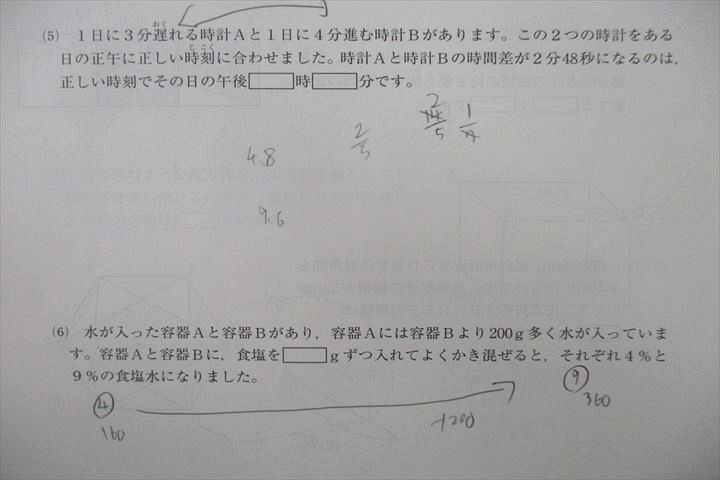 (5) 1日に3分遅れる時計Aと1日に4分進む時計Bがあります。この2つの時計をある
日の正午に正しい時刻に合わせました。時計Aと時計Bの時間差が2分48秒になるのは,
正しい時刻でその日の午後□時□分です。
4.8
9.6
(6) 水が入った容器Aと容器Bがあり,容器Aには容器Bより200g多く水が入っていま
す。容器Aと容器Bに,食塩を□gずつ入れてよくかき混ぜると,それぞれ4%と
9%の食塩水になりました。
④ ⑨
160 -200 360